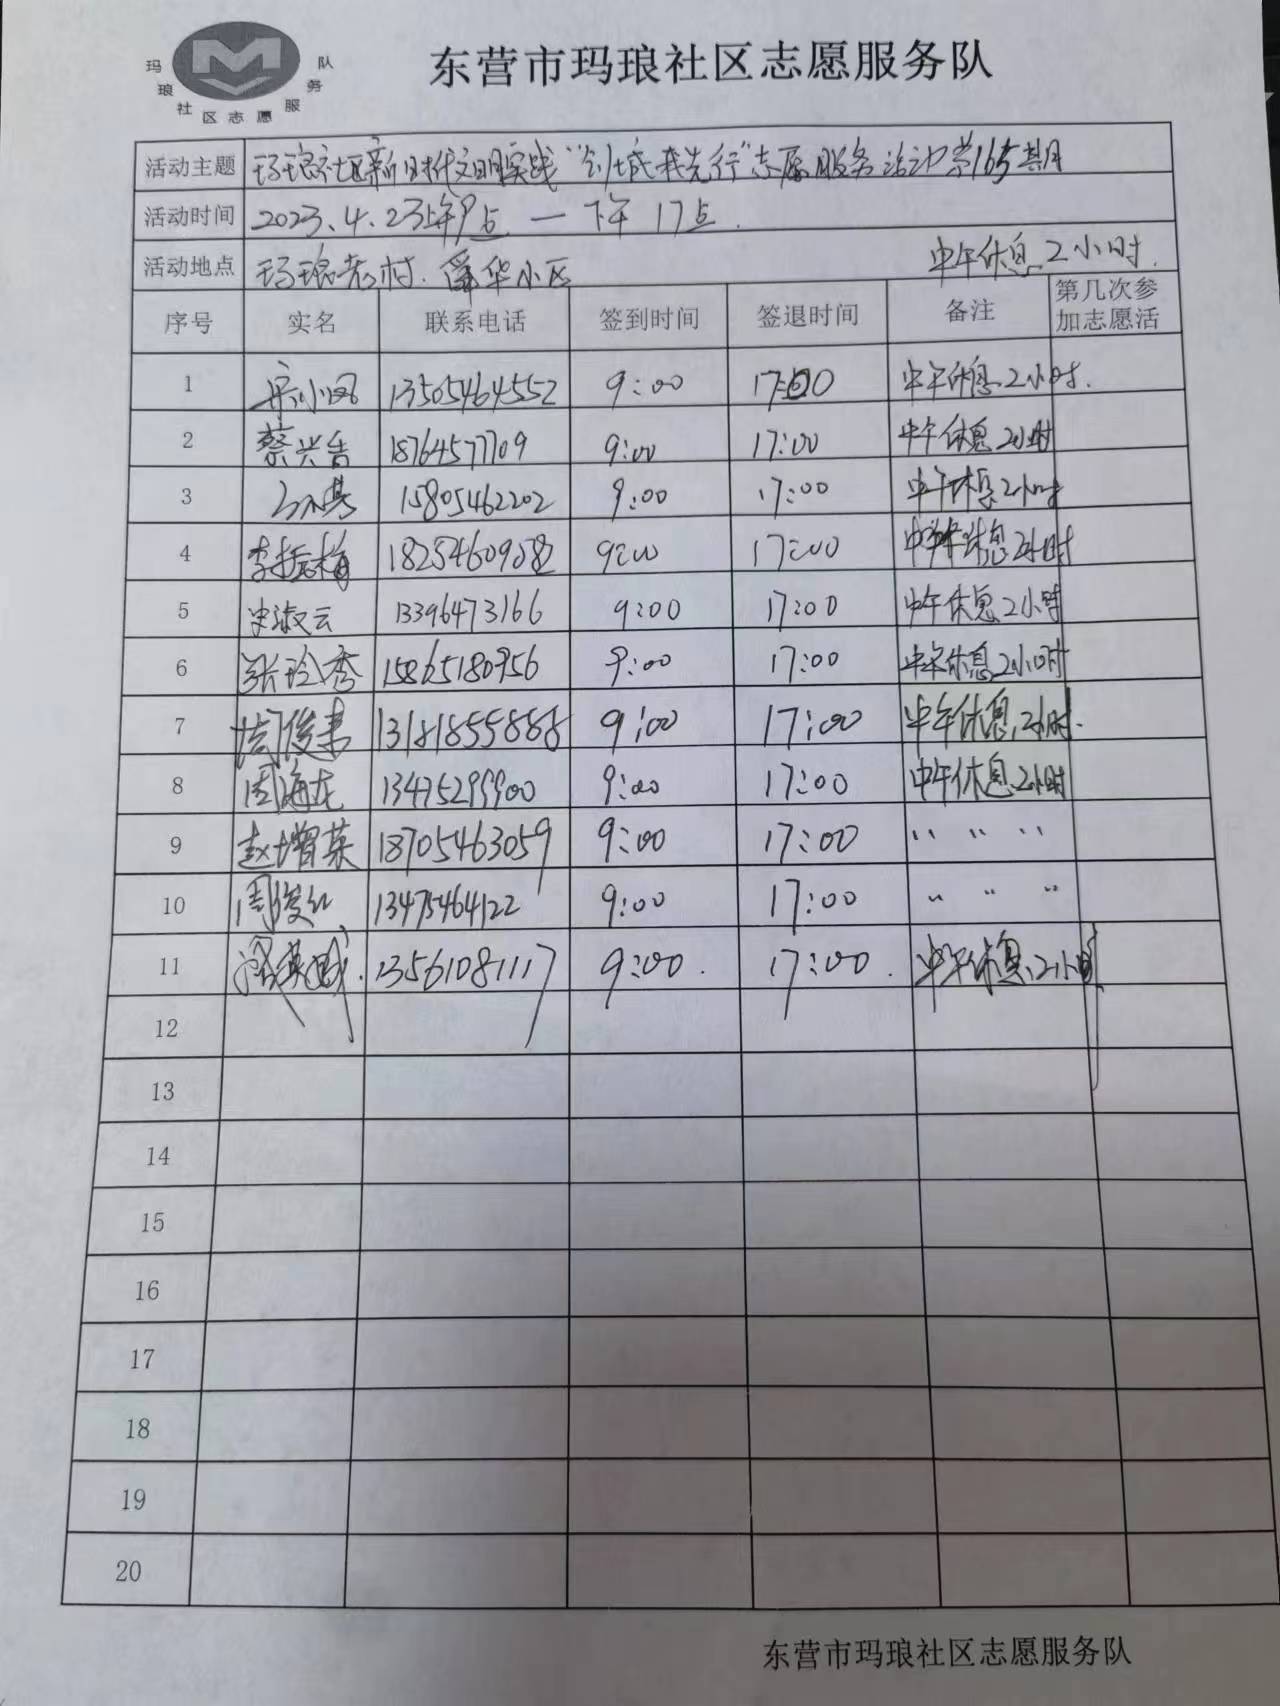 玛琅社区志愿服务队
东营市玛琅社区志愿服务队
活动主题 玛琅社区新时代文明实践“创城我先行”志愿服务活动第165期
活动时间 2023.4.23上午9点 — 下午17点.
活动地点 玛琅老村. 舜华小区 中午休息2小时.
序号 实名 联系电话 签到时间 签退时间 备注 第几次参加志愿活
1 宋小凤 13505464552 9:00 17:00 中午休息2小时.
2 蔡兴香 18764577709 9:00 17:00 中午休息2小时
3 15805462202 9:00 17:00 中午休息2小时
4 李振梅 18254609082 9:00 17:00 中午休息2小时
5 史淑云 13396473166 9:00 17:00 中午休息2小时
6 张玲秀 15865180956 9:00 17:00 中午休息2小时
7 周俊青 13181855888 9:00 17:00 中午休息2小时.
8 周海龙 13475299900 9:00 17:00 中午休息2小时
9 赵增荣 18705463059 9:00 17:00 〃 〃 〃
10 周俊红 13475464122 9:00 17:00 〃 〃 〃
11 13561081117 9:00. 17:00. 中午休息2小时
12
13
14
15
16
17
18
19
20
东营市玛琅社区志愿服务队